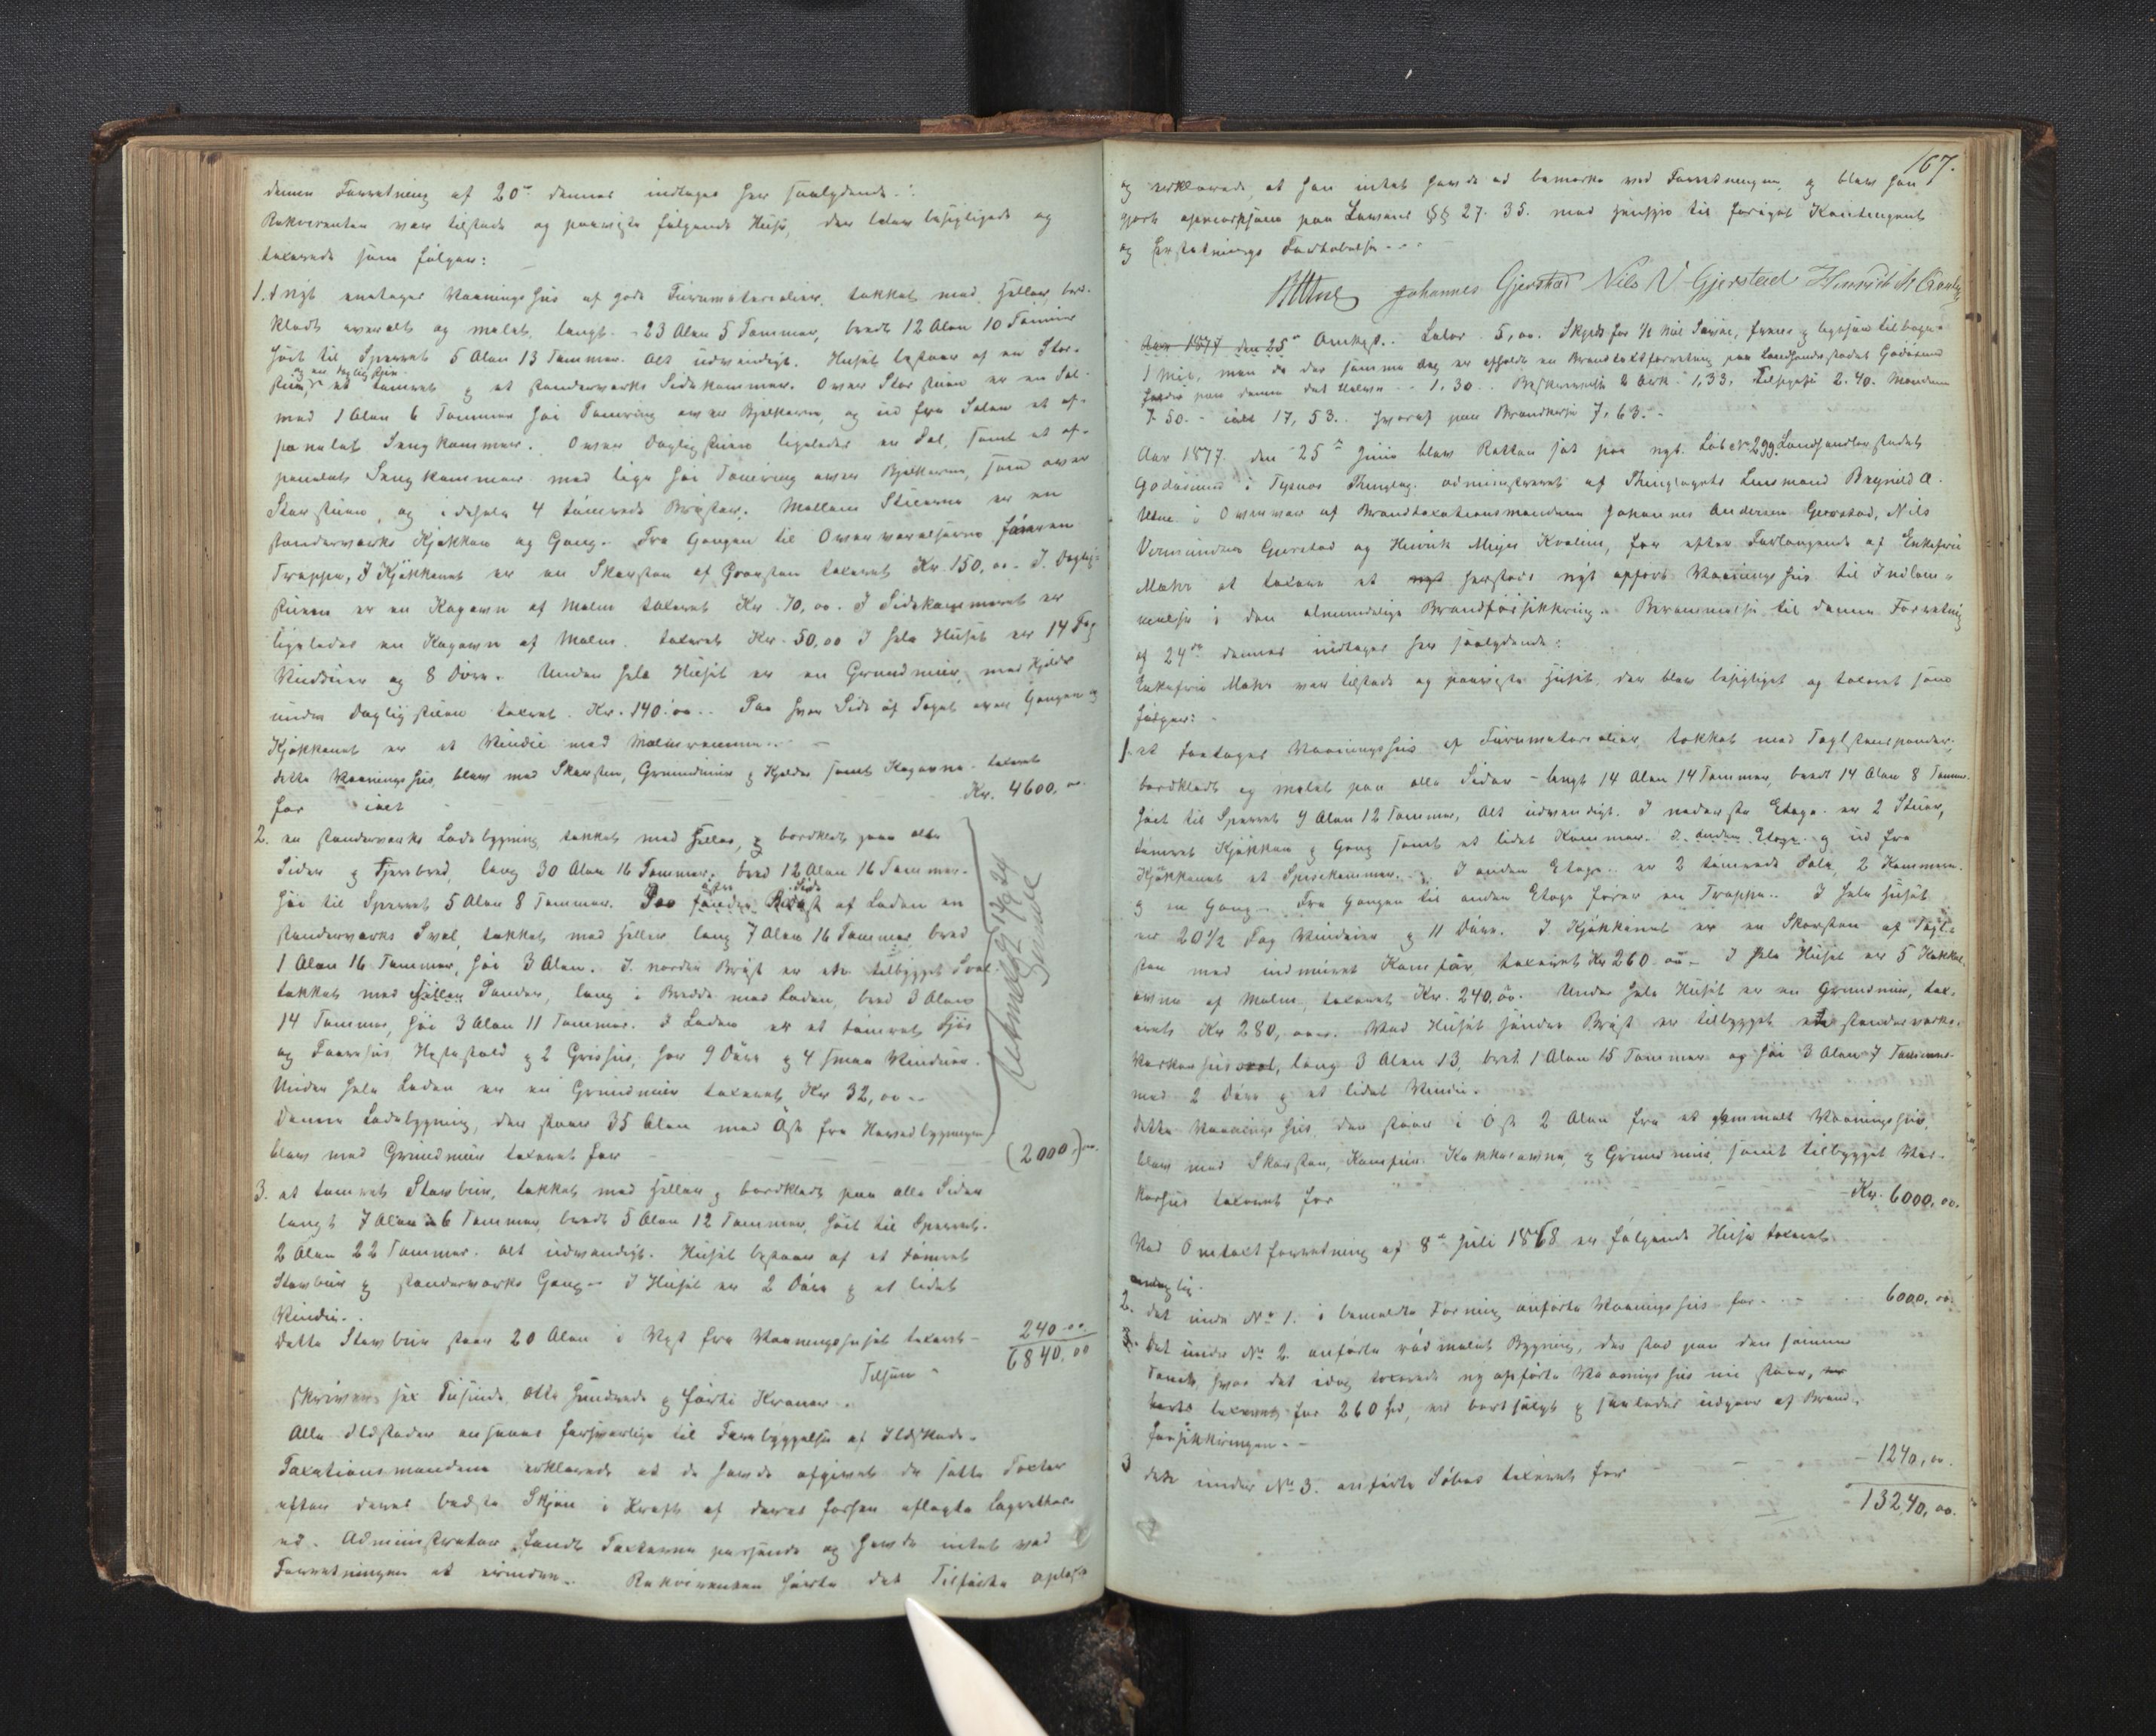 denne Forretning af 20de dennes indtages her saalydende:
Rekvirenten var tilstede og paaviste følgende Huse, der blev besigtigede og
taxerede som følger:
1. Et nyt enetages Vaaningshus af gode Furumaterialier, tækket med Heller, bord-
klædt overalt og malet, langt 23 Alen 5 Tommer, bredt 12 Alen 10 Tommer
høit til Sperret 5 Alen 13 Tommer. Alt udvendigt. Huset bestaar af en Stor-
stue, og en Daglig Stue et tømret og et standerværks Sidekammer. Over Storstuen er en Sal
med 1 Alen 6 Tommer høi Tømring over Bjelkerne, og ud fra Salen et af-
panelet Sengkammer. Over Dagligstuen ligeledes en Sal, samt et af-
panelet Sengkammer med lige høi Tømring over Bjelkerne, som over
Storstuen, og i dehele 4 tømrede Bryster. Mellem Stuerne er en
standerværks Kjøkken og Gang. Fra Gangen til Overværelserne fører en
Trappe. I Kjøkkenet er en Skorsten af Graasten taxeret Kr. 150,00. I Daglig-
stuen er en Kagovn af Malm taxeret Kr. 70,00. I Sidekammeret er
ligeledes en Kagovn af Malm taxeret Kr. 50,00 I hele Huset er 14 Fag
Vinduer og 8 Døre. Under hele Huset er en Grundmur, med Kjelder
under Dagligstuen taxeret Kr. 140.00. Paa hver Side af Taget over Gangen og
Kjøkkenet er et Vindu med Malmramme.
Dette Vaaningshus, blev med Skorsten, Grundmur og Kjelder samt Kagovne taxeret
for ialt Kr. 4600,00
2. en standerværks Ladebygning tækket med Heller, og bordklædt paa alle
Sider og tjærebred, lang 30 Alen 16 Tommer, bred 12 Alen 16 Tommer.
høi til Sperret 5 Alen 8 Tommer. Paa søndre østre Bryst Side af Laden en
standerværks Sval, tækket med Heller lang 7 Alen 16 Tommer, bred
1 Alen 16 Tommer, høi 3 Alen. I nordre Bryst er en tilbygget Sval
tækket med Heller Pander, lang i Bredde med Laden, bred 3 Alen
14 Tommer, høi 3 Alen 11 Tommer. I Laden er et tømret Fjøs
og Faarehus, Hestestald og 2 Grishus, har 9 Døre og 4 smaa Vinduer.
Under hele Laden er en Grundmur taxeret Kr 32,00
Denne Ladebygning, der staar 35 Alen mod Øst fra Hovedbygningen
blev med Grundmur taxeret for (2000,)00.
Utmeldt 17/9 24
3. et tømret Stavbur, tækket med Heller og bordklædt paa alle Sider
langt 7 Alen 6 Tommer, bredt 5 Alen 12 Tommer, høit til Sperret
2 Alen 22 Tommer. alt udvendigt. Huset bestaar af et tømret
Stavbur og standerværks Gang. I Huset er 2 Døre og et lidet
Vindu.
Dette Stavbur staar 20 Alen i Vest fra Vaaningshuset taxeret 240.00
Tilsam 6840,00
skriver sex Tusinde otte Hundrede og førti Kroner.
Alle Ildsteder ansaaes forsvarlige til Forebyggelse af Ildskade.
Taxationsmændene erklærede at de havde afgivet de satte Taxter
efter deres bedste Skjøn i Kraft af deres forhen aflagte Lagrettes-
ed. Administrator fandt Taxterne passende og havde intet ved
Forretningen at erindre. Rekvirenten hørte det Tilførte oplæst
167.
og erklærede, at han intet havde at bemærke ved Forretningen, og blev han
gjort opmærksom paa Lovens §§ 27. 35. med Hensyn til forøget Kontingent
og Erstatnings Fortabelse.
Johannes Gjerstad Nils V. Gjerstad
Aar 1877 den 25de Omkost. Lator 5,00. Skyds for 1/2 Mil Søvei, frem og ligesaa tilbage
1 Mil, men da der samme Dag er afholdt en Brandtaxtforretning paa Landhandlerstedet Godøsund
paa denne det Halve 1,30. Beskrivelse 2 Ark 1,33, Tilsyn 2.40. Mændene
7.50. ialt 17,53. hvoraf paa Brandkasse 7,63.
Aar 1877 den 25de Juni blev Retten sat paa Mat. Løb N. 299 Landhandlerstedet
Godøsund i Tysnes Thinglag. administreret af Thinglagets Lensmand Brynild A.
Utne i Overvær af Brandtaxationsmændene Johannes Andersen Gjerstad, Nils
Vermundsen Gjerstad og Henrik Meyer Kvalen, for efter Forlangende af Enkefru
Mohr at taxere et nyt herstedt nyt opført Vaaningshus til Indlem-
melse i den almindelige Brandforsikkring. Berammelse til denne Forretning
af 24de dennes indtages her saalydende:
Enkefru Mohr var tilstede og paaviste Huset, der blev besigtiget og taxeret som
følger:
1. et toetages Vaaningshus af Furumaterialier, tækket med Teglstenspander,
bordklædt og malet paa alle Sider - langt 14 Alen 14 Tommer, bredt 14 Alen 8 Tommer.
høit til Sperret 9 Alen 12 Tommer, Alt udvendigt. I nederste Etage er 2 Stuer,
tømret Kjøkken og Gang samt et lidet Kammer. I anden Etage og ud fra
Kjøkkenet et Spisekammer. I anden Etage er 2 tømrede Sale, 2 Kammere
og en Gang. Fra Gangen til anden Etage fører en Trappe. I hele Huset
er 20 1/2 Fag Vinduer og 11 Døre. I Kjøkkenet er en Skorsten af Tegl-
sten med indmuret Komfur, taxeret Kr 260.00 I hele Huset er 5 Kakkel-
ovne af Malm, taxeret Kr. 240,00. Under hele Huset er en Grundmur, tax-
eret Kr 280,00. Ved Huset søndre Bryst er tilbygget et standerværks
Vaskerhus, lang 3 Alen 13, bred 1 Alen 15 Tommer og høi 3 Alen 7 Tommer
med 2 Døre og et lidet Vindu.
Dette Vaaningshus, der staar i Øst 2 Alen fra et gammelt Vaaningshus,
blev med Skorsten, Komfur, Kakkelovne, og Grundmur, samt tilbygget Vas-
kerhus taxeret for Kr. 6000,00.
Ved Omtaxtforretning af 8de Juli 1868 er følgende Huse taxeret
2. det under No 1. i bemeldte Forretning anførte Vaaningshus for 6000,00.
3. Det under No 2. anførte rødmalet Bygning, der stod paa den samme
Tomt, hvor det idag taxerede ny opførte Vaaningshus nu staar,
taxeret for 260 Spd, er bortsolgt og saaledes udgaar af Brand-
forsikkringen.
3 det under No 3. anførte Søhus taxeret for 1240,00.
13240,00.